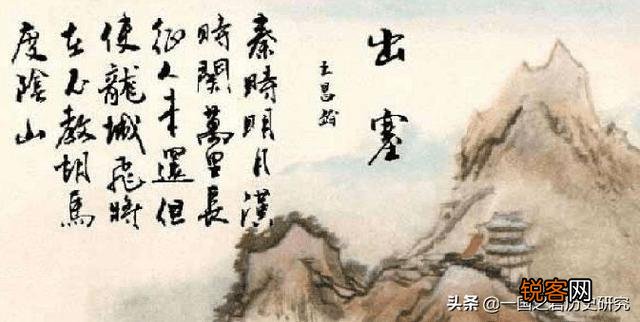 出塞
王昌龄
秦時明月漢
時関萬里長
征人未還但
使龍城飛将
在不教胡馬
度陰山
锐客网
头条 @一国之君历史研究